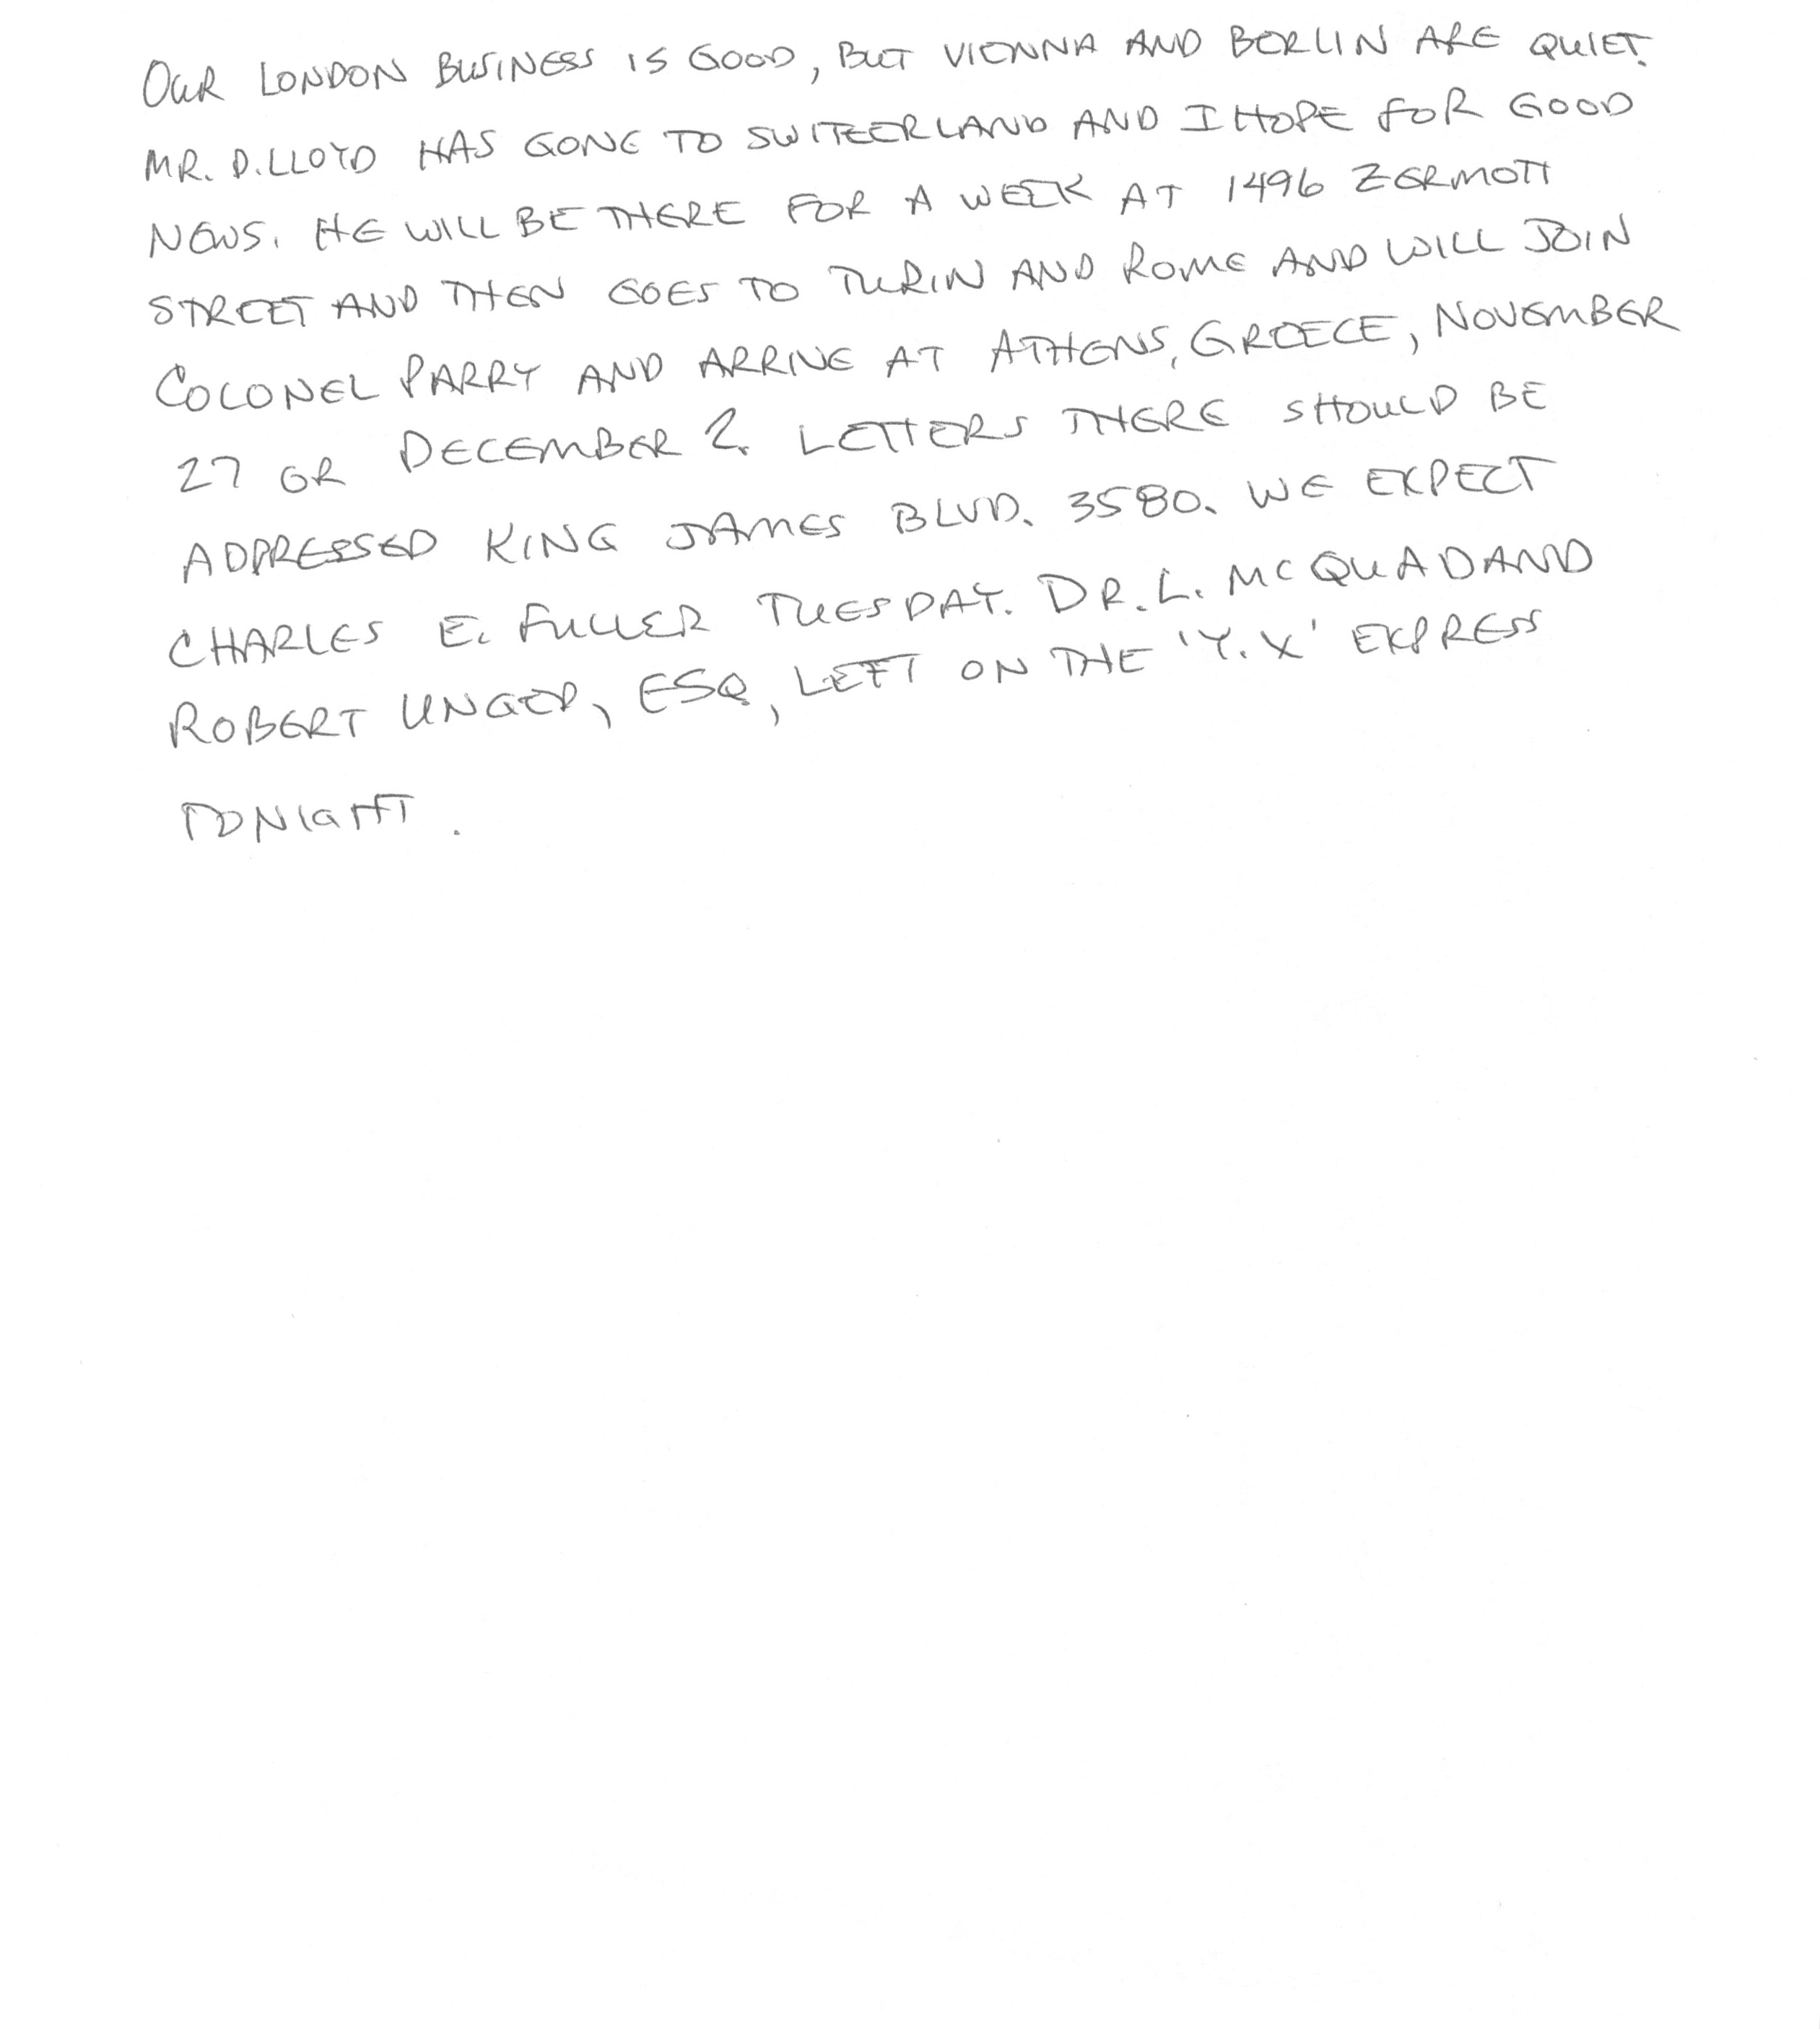 OUR LONDON BUSINESS IS GOOD, BUT VIENNA AND BERLIN ARE QUIET.
MR. D. LLOYD HAS GONE TO SWITZERLAND AND I HOPE FOR GOOD
NEWS. HE WILL BE THERE FOR A WEEK AT 1496 ZERMOTT
STREET AND THEN GOES TO TURIN AND ROME AND WILL JOIN
COLONEL PARRY AND ARRIVE AT ATHENS, GREECE, NOVEMBER
27 OR DECEMBER 2. LETTERS THERE SHOULD BE
ADDRESSED KING JAMES BLVD. 3580. WE EXPECT
CHARLES E. FULLER TUESDAY. DR. L. MCQUAD AND
ROBERT UNGER, ESQ., LEFT ON THE 'Y.X' EXPRESS
TONIGHT.